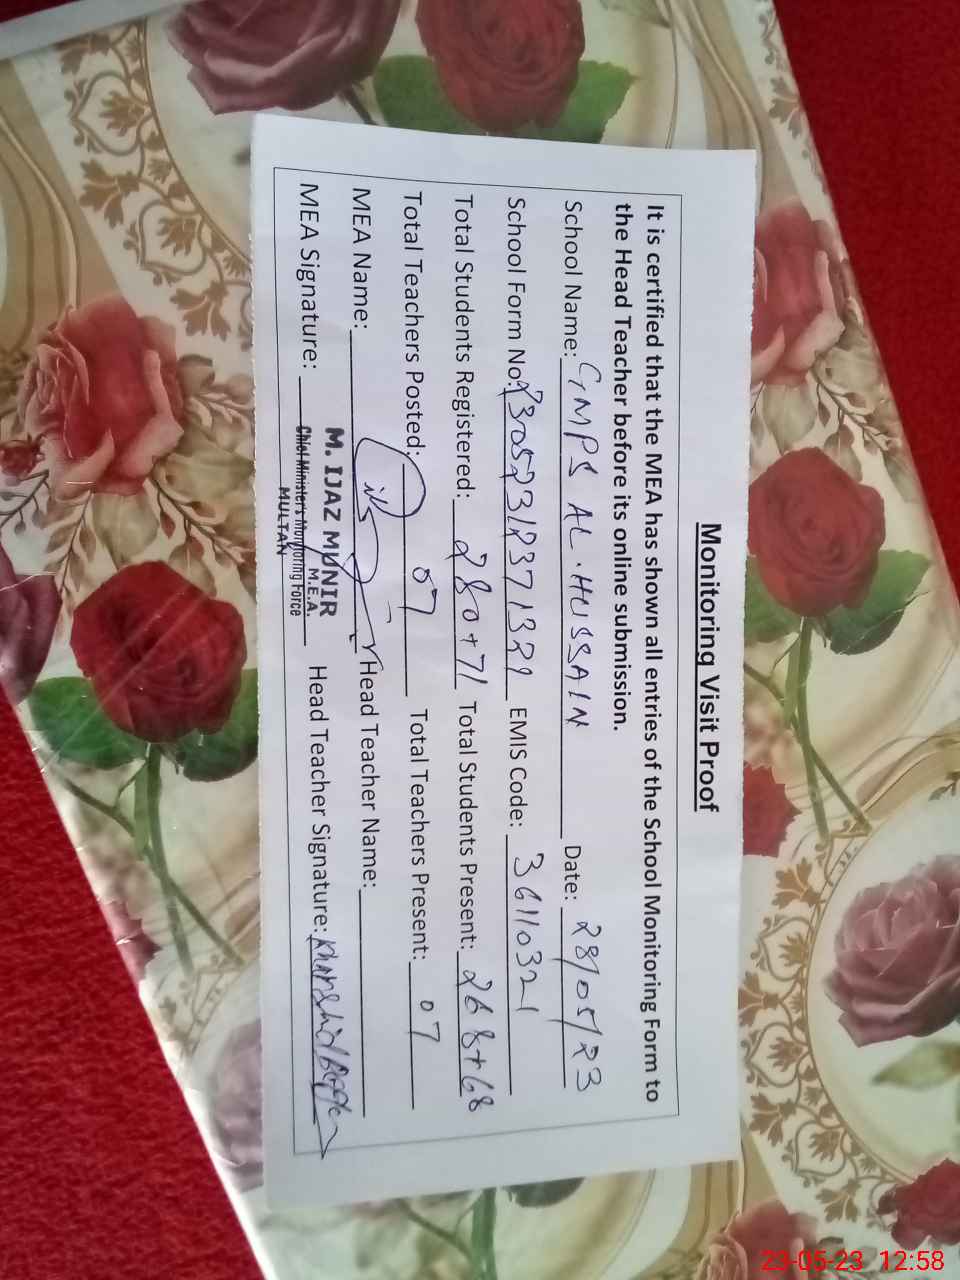 Monitoring Visit Proof
It is certified that the MEA has shown all entries of the School Monitoring Form to
the Head Teacher before its online submission.
School Name: GMPS AL.HUSSAIN Date: 23/05/23
School Form No: 23052312371321 EMIS Code: 36110321
Total Students Registered: 280+71 Total Students Present: 268+68
Total Teachers Posted: 07 Total Teachers Present: 07
MEA Name: Head Teacher Name:
MEA Signature: Head Teacher Signature: Khurshid
M. IJAZ MUNIR
M.E.A.
Chief Minister's Monitoring Force
MULTAN
23-05-23 12:58